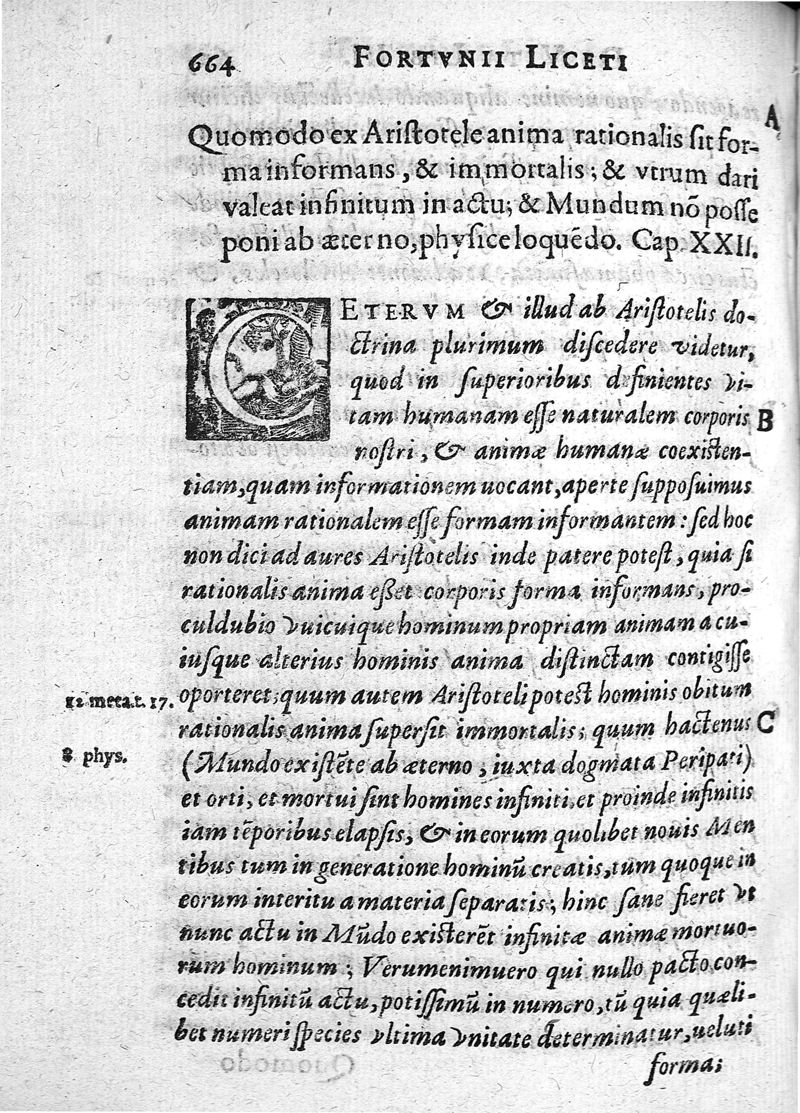 664 FORTVNII LICETI
A
Quomodo ex Aristotele anima rationalis sit for-
ma informans, & immortalis; & vtrum dari
valeat infinitum in actu; & Mundum nō posse
poni ab æterno, physice loquēdo. Cap. XXII.
CETERVM & illud ab Aristotelis do-
ctrina plurimum discedere videtur,
quod in superioribus definientes vi-
tam humanam esse naturalem corporis B
nostri, & animæ humanæ coexisten-
tiam, quam informationem uocant, aperte supposuimus
animam rationalem esse formam informantem: sed hoc
non dici ad aures Aristotelis inde patere potest, quia si
rationalis anima esset corporis forma informans, pro-
culdubio vnicuique hominum propriam animam a cu-
iusque alterius hominis anima distinctam contigisse
12 meta.t. 17. oporteret; quum autem Aristoteli potest hominis obitum
rationalis anima supersit immortalis; quum hactenus C
8 phys. (Mundo existēte ab æterno, iuxta dogmata Peripati)
et orti, et mortui sint homines infiniti, et proinde infinitis
iam tēporibus elapsis, & in eorum quolibet nouis Men
tibus tum in generatione hominū creatis, tum quoque in
eorum interitu a materia separatis; hinc sane fieret vt
nunc actu in Mūdo existerēt infinitæ animæ mortuo-
rum hominum; Verumenimuero qui nullo pacto con-
cedit infinitū actu, potissimū in numero, tū quia quæli-
bet numeri species vltima vnitate determinatur, ueluti
forma;